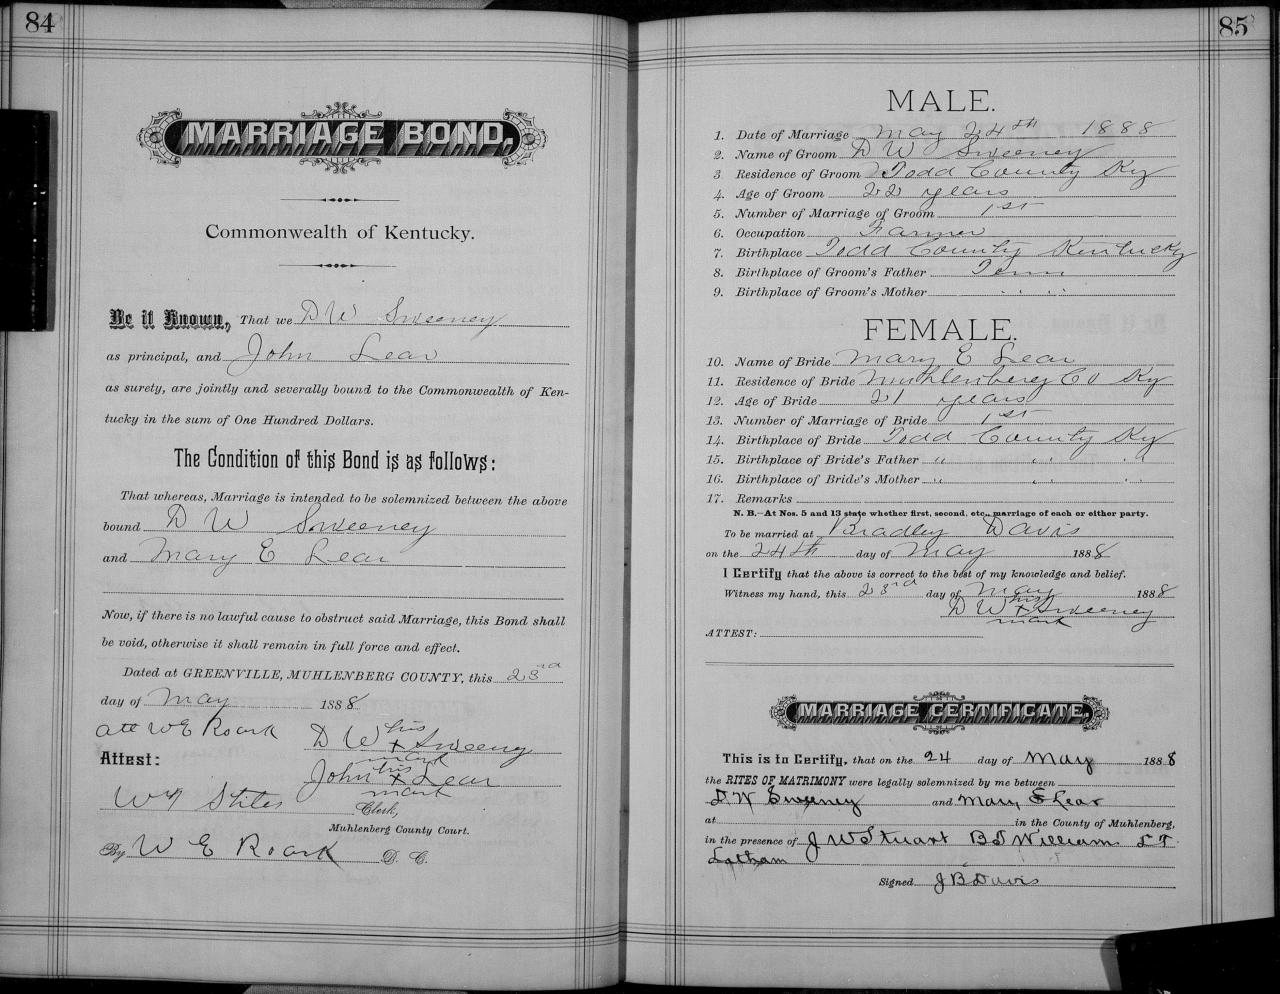 84
MARRIAGE BOND,
Commonwealth of Kentucky.
Be it Known, That we D W Sweeney
as principal, and John Lear
as surety, are jointly and severally bound to the Commonwealth of Ken-
tucky in the sum of One Hundred Dollars.
The Condition of this Bond is as follows:
That whereas, Marriage is intended to be solemnized between the above
bound D W Sweeney
and Mary E Lear
Now, if there is no lawful cause to obstruct said Marriage, this Bond shall
be void, otherwise it shall remain in full force and effect.
Dated at GREENVILLE, MUHLENBERG COUNTY, this 23rd
day of May 1888
Att W E Roark
D W his x mark Sweeney
Attest:
John his x mark Lear
Stiles
Clerk,
Muhlenberg County Court.
By W E Roark D. C.
85
MALE.
1. Date of Marriage May 24th 1888
2. Name of Groom D W Sweeney
3. Residence of Groom Todd County Ky
4. Age of Groom 22 years
5. Number of Marriage of Groom 1st
6. Occupation Farmer
7. Birthplace Todd County Kentucky
8. Birthplace of Groom's Father Tenn
9. Birthplace of Groom's Mother " " "
FEMALE.
10. Name of Bride Mary E Lear
11. Residence of Bride Muhlenberg Co Ky
12. Age of Bride 21 years
13. Number of Marriage of Bride 1st
14. Birthplace of Bride Todd County Ky
15. Birthplace of Bride's Father " " "
16. Birthplace of Bride's Mother " " "
17. Remarks
N. B.—At Nos. 5 and 13 state whether first, second, etc., marriage of each or either party.
To be married at Bradley Davis
on the 24th day of May 1888
I Certify that the above is correct to the best of my knowledge and belief.
Witness my hand, this 23rd day of May 1888
D W his x mark Sweeney
ATTEST:
MARRIAGE CERTIFICATE.
This is to Certify, that on the 24 day of May 1888
the RITES OF MATRIMONY were legally solemnized by me between
D W Sweeney and Mary E Lear
at in the County of Muhlenberg,
in the presence of J W Stuart B S William L T
Latham
Signed J B Davis